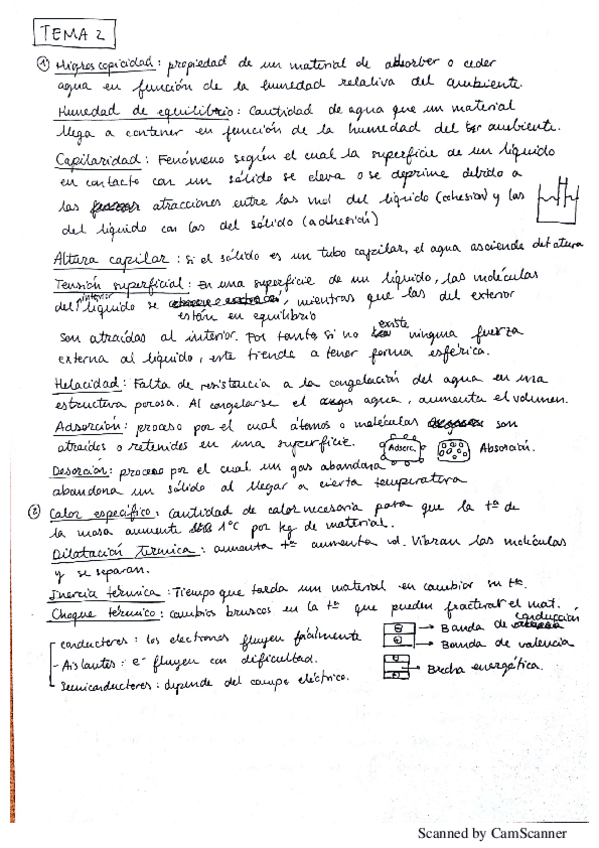 TEMA 2
① Higroscopicidad: propiedad de un material de absorber o ceder
agua en función de la humedad relativa del ambiente.
Humedad de equilibrio: Cantidad de agua que un material
llega a contener en función de la humedad del ambiente.
Capilaridad: Fenómeno según el cual la superficie de un líquido
en contacto con un sólido se eleva o se deprime debido a
las atracciones entre las mol del líquido (cohesion) y las
del líquido con las del sólido (adhesión)
Altura capilar: si el sólido es un tubo capilar, el agua asciende det atura
Tensión superficial: En una superficie de un líquido, las moléculas
del interior líquido se están en equilibrio, mientras que las del exterior
son atraídas al interior. Por tanto, si no existe ninguna fuerza
externa al líquido, este tiende a tener forma esférica.
Helacidad: Falta de resistencia a la congelación del agua en una
estructura porosa. Al congelarse el agua, aumenta el volumen.
Adsorción: proceso por el cual átomos o moléculas son
atraídos o retenidos en una superficie. Adsorc. Absorción.
Desorción: proceso por el cual un gas abandona
abandona un sólido al llegar a cierta temperatura
② Calor específico: cantidad de calor necesaria para que la tª de
la masa aumente 1ºC por kg de material.
Dilatación térmica: aumenta tª aumenta vol. Vibran las moléculas
y se separan.
Inercia térmica: Tiempo que tarda un material en cambiar su tª.
Choque térmico: cambios bruscos en la tª que pueden fracturar el mat.
conductores: los electrones fluyen fácilmente
- Aislantes: e⁻ fluyen con dificultad.
- Semiconductores: depende del campo eléctrico.
Banda de conducción
Banda de valencia
Brecha energética.
Scanned by CamScanner